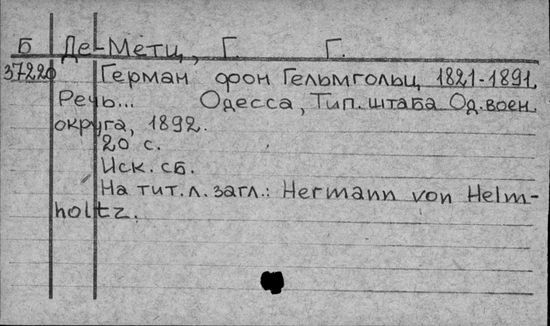 Б Де-Метц, Г. Г.
37220 Герман фон Гельмгольц 1821-1891
Речь... Одесса, Тип. штаба Од. воен.
округа, 1892.
20 с.
Иск. сб.
На тит. л. загл.: Hermann von Helm-
holtz.